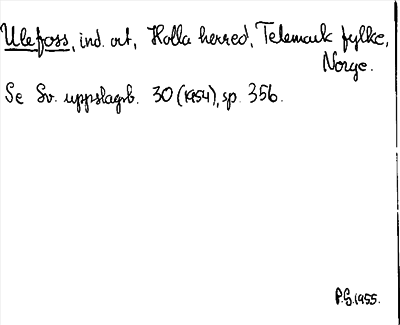 Ulefoss, ind. ort, Holla herred, Telemark fylke,
Norge.
Se Sv. uppslagsb. 30 (1954), sp. 356.
P.G. 1955.